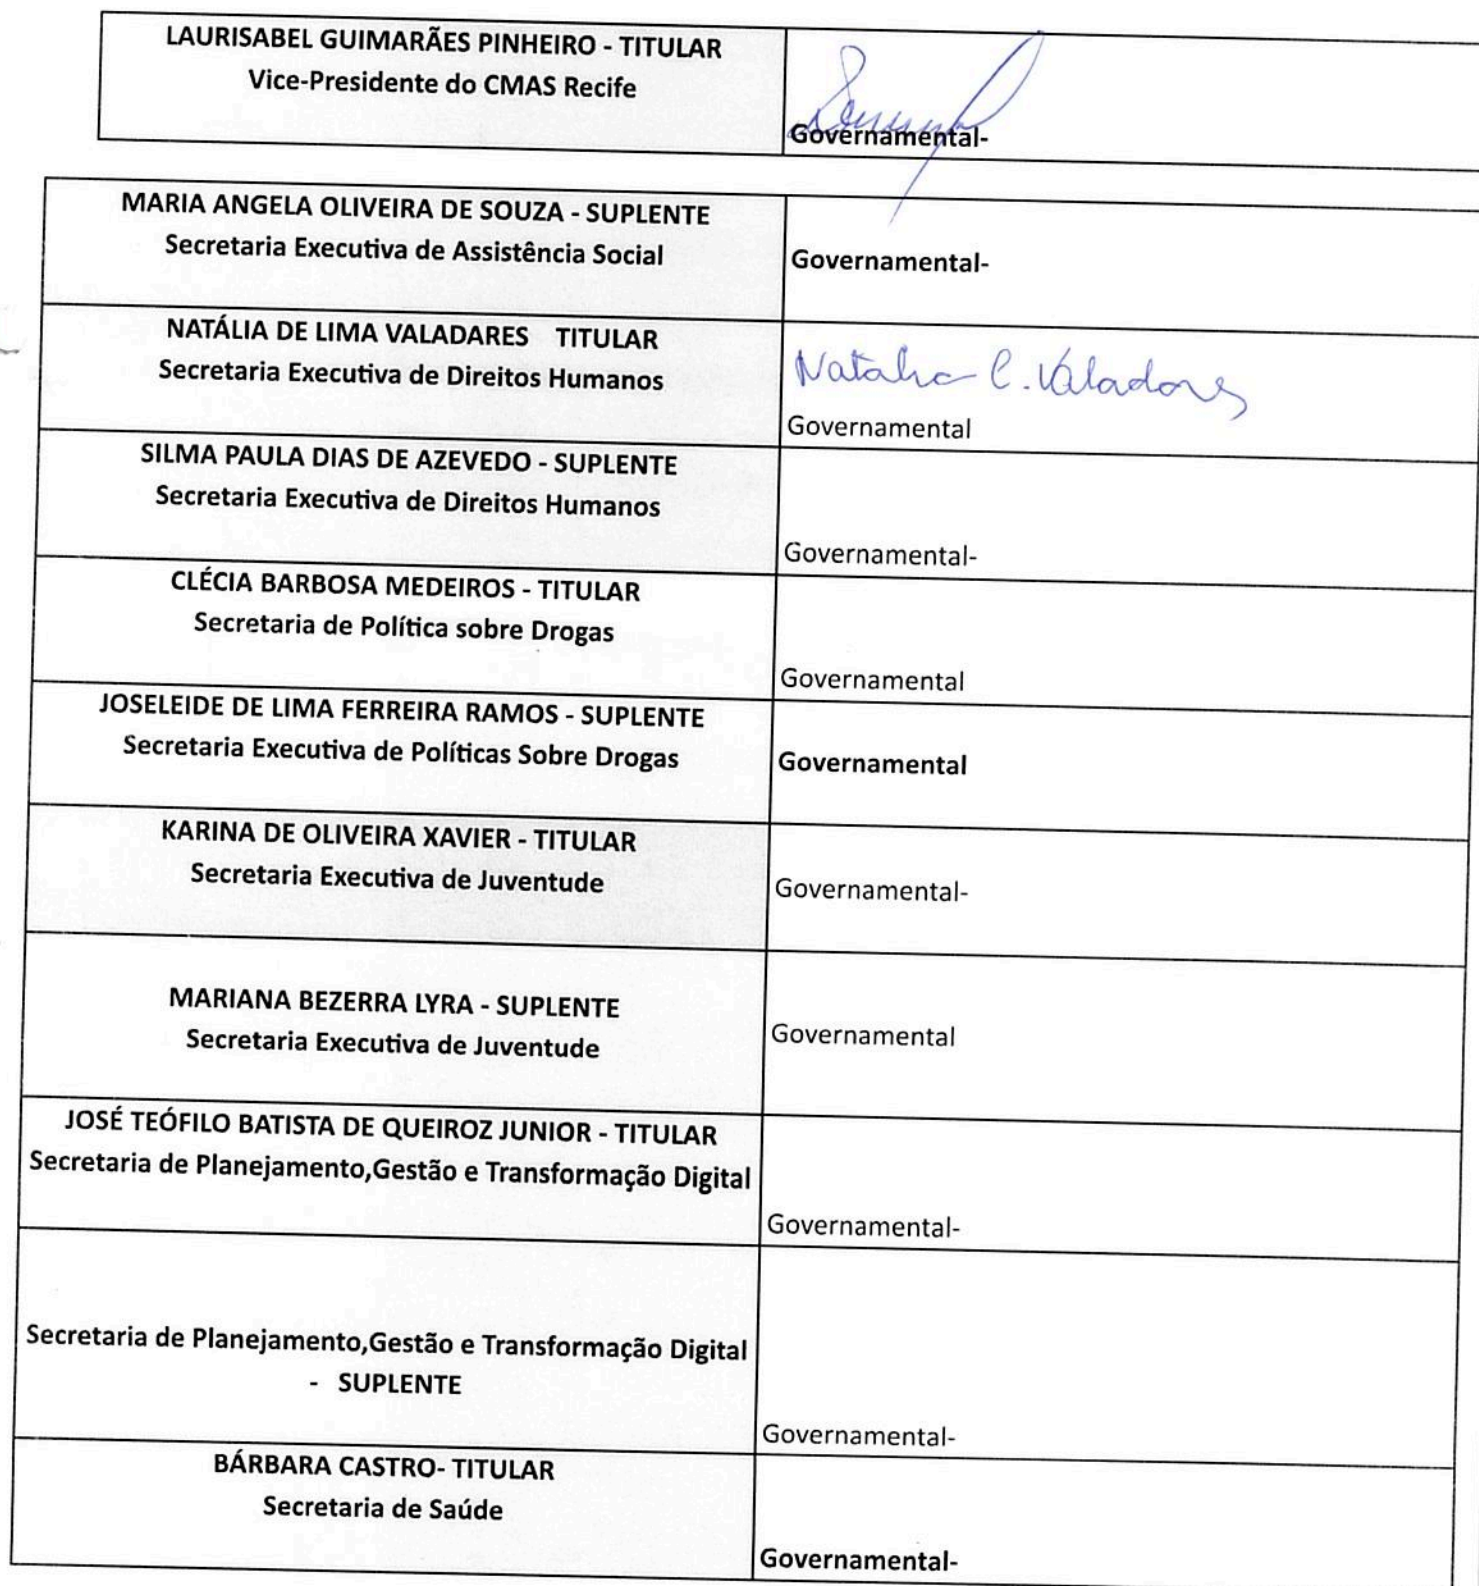 LAURISABEL GUIMARÃES PINHEIRO - TITULAR
Vice-Presidente do CMAS Recife
Governamental-
MARIA ANGELA OLIVEIRA DE SOUZA - SUPLENTE
Secretaria Executiva de Assistência Social
Governamental-
NATÁLIA DE LIMA VALADARES TITULAR
Secretaria Executiva de Direitos Humanos
Natalia C. Valadares
Governamental
SILMA PAULA DIAS DE AZEVEDO - SUPLENTE
Secretaria Executiva de Direitos Humanos
Governamental-
CLÉCIA BARBOSA MEDEIROS - TITULAR
Secretaria de Política sobre Drogas
Governamental
JOSELEIDE DE LIMA FERREIRA RAMOS - SUPLENTE
Secretaria Executiva de Políticas Sobre Drogas
Governamental
KARINA DE OLIVEIRA XAVIER - TITULAR
Secretaria Executiva de Juventude
Governamental-
MARIANA BEZERRA LYRA - SUPLENTE
Secretaria Executiva de Juventude
Governamental
JOSÉ TEÓFILO BATISTA DE QUEIROZ JUNIOR - TITULAR
Secretaria de Planejamento,Gestão e Transformação Digital
Governamental-
Secretaria de Planejamento,Gestão e Transformação Digital
- SUPLENTE
Governamental-
BÁRBARA CASTRO- TITULAR
Secretaria de Saúde
Governamental-